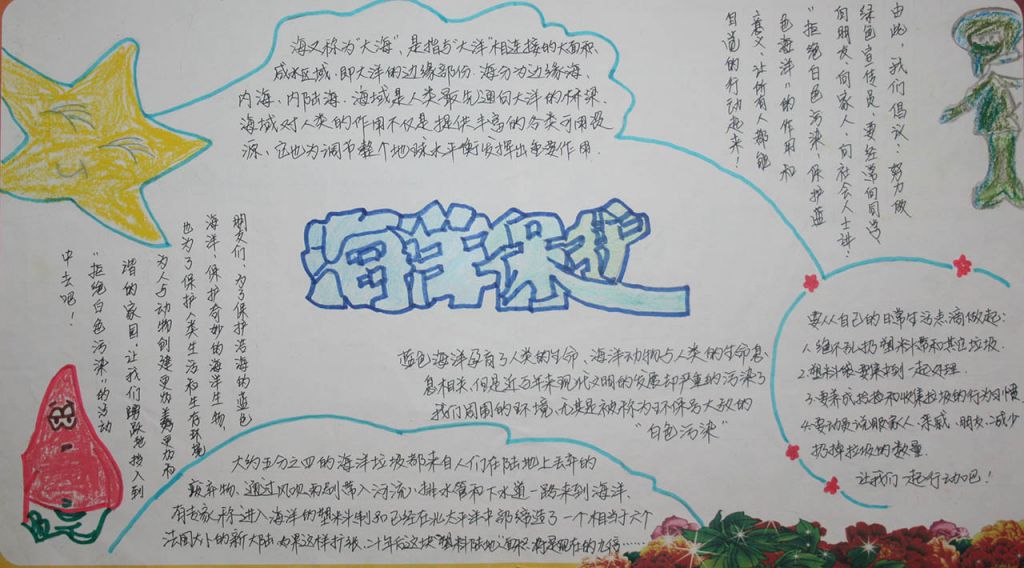 海又称为“大海”，是指与“大洋”相连接的大面积
咸水区域，即大洋的边缘部份．海分为边缘海、
内海、内陆海．海域是人类最先通向大洋的桥梁．
海域对人类的作用不仅是提供丰富的各类可用资
源，它也为调节整个地球水平衡发挥出重要作用．
由此，我们倡议：努力做
绿色宣传员，要经常向同学
向朋友，向家人，向社会人士讲
“拒绝白色污染，保护蓝
色海洋”的作用和
意义，让所有人都能
自道的行动起来！
海洋保护
朋友们，为了保护沿海的蓝色
海洋，保护奇妙的海洋生物，
也为了保护人类生活和生存环境
为人与动物创建更为美好更为和
谐的家园，让我们踊跃地投入到
“拒绝白色污染”的活动
中去吧！
蓝色海洋孕育了人类的生命、海洋动物与人类的生命息
息相关，但是近百年来现代文明的发展却严重的污染了
我们周围的环境、尤其是被称为环保头号大敌的
“白色污染”
要从自己的日常生活点滴做起：
1.绝不乱扔塑料袋和其它垃圾．
2.塑料袋要集到一起处理．
3.要养成捡拾和收集垃圾的行为习惯
4.要动员说服家人、亲戚、朋友、减少
扔掉垃圾的数量．
让我们一起行动吧！
大约五分之四的海洋垃圾都来自人们在陆地上丢弃的
废弃物、通过风吹雨刮带入河流，排水管和下水道一路来到海洋．
有专家称进入海洋的塑料制品已经在北太平洋中部缔造了一个相当于六个
法国大小的新大陆如果这样扩张．二十年后这块“塑料陆地”面积将是现在的九倍……